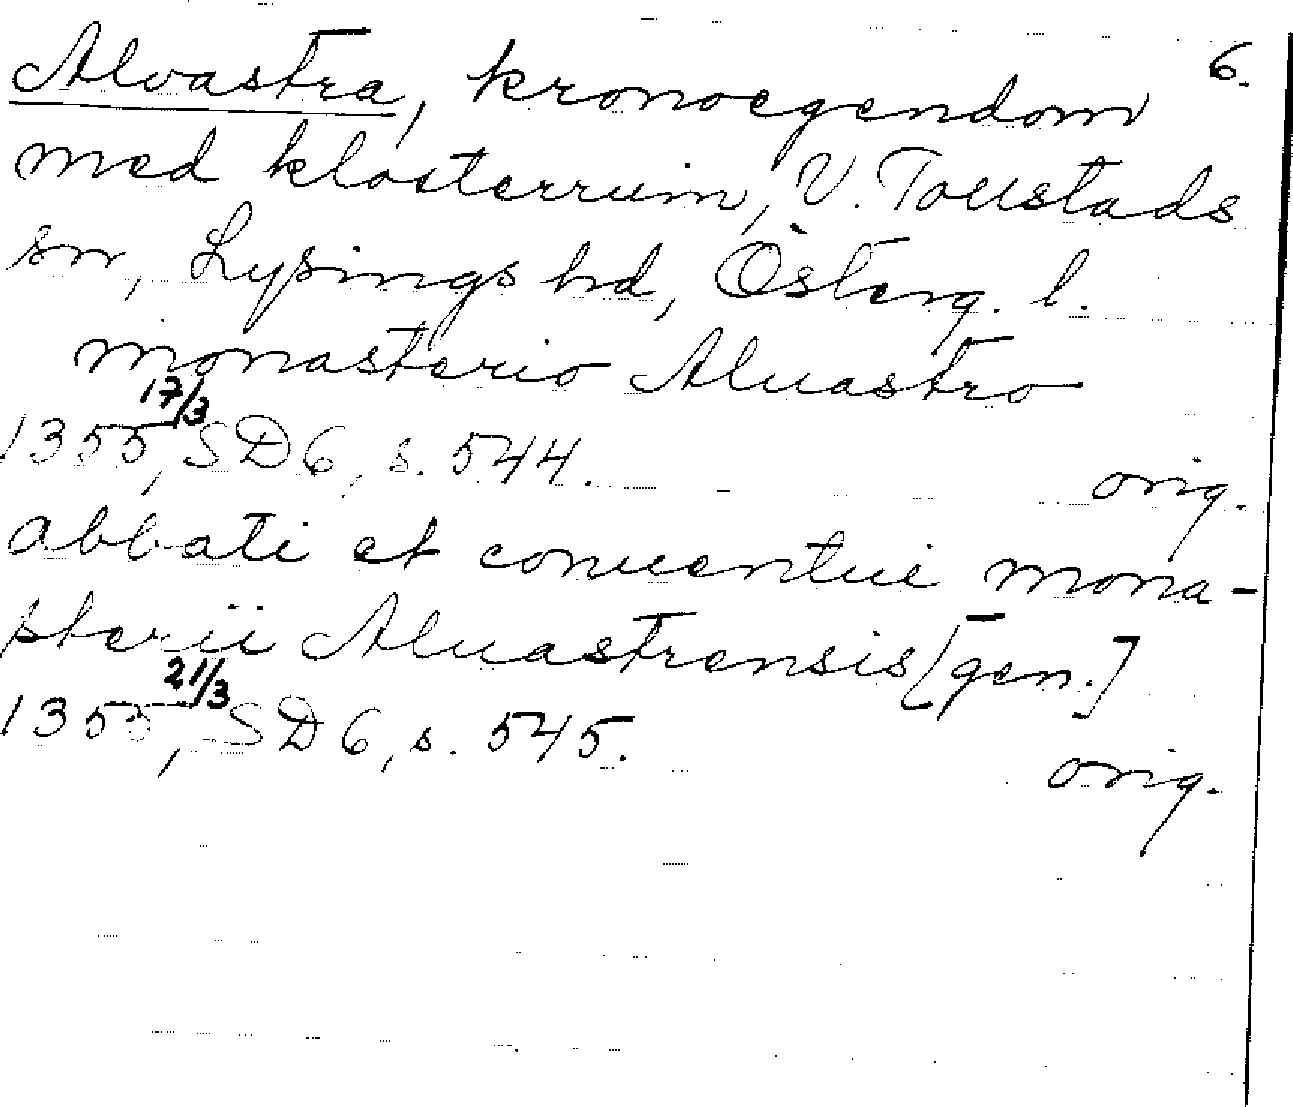 6.
Alvastra, kronoegendom
med klosterruin, V. Tollstads
sn, Lysings hd, Österg. l.
monasterio Aluastro
1355 17/3, SD 6, s. 544. orig.
abbati et conuentui mona-
sterii Aluastrensis [gen.]
1355 21/3, SD 6, s. 545.
orig.